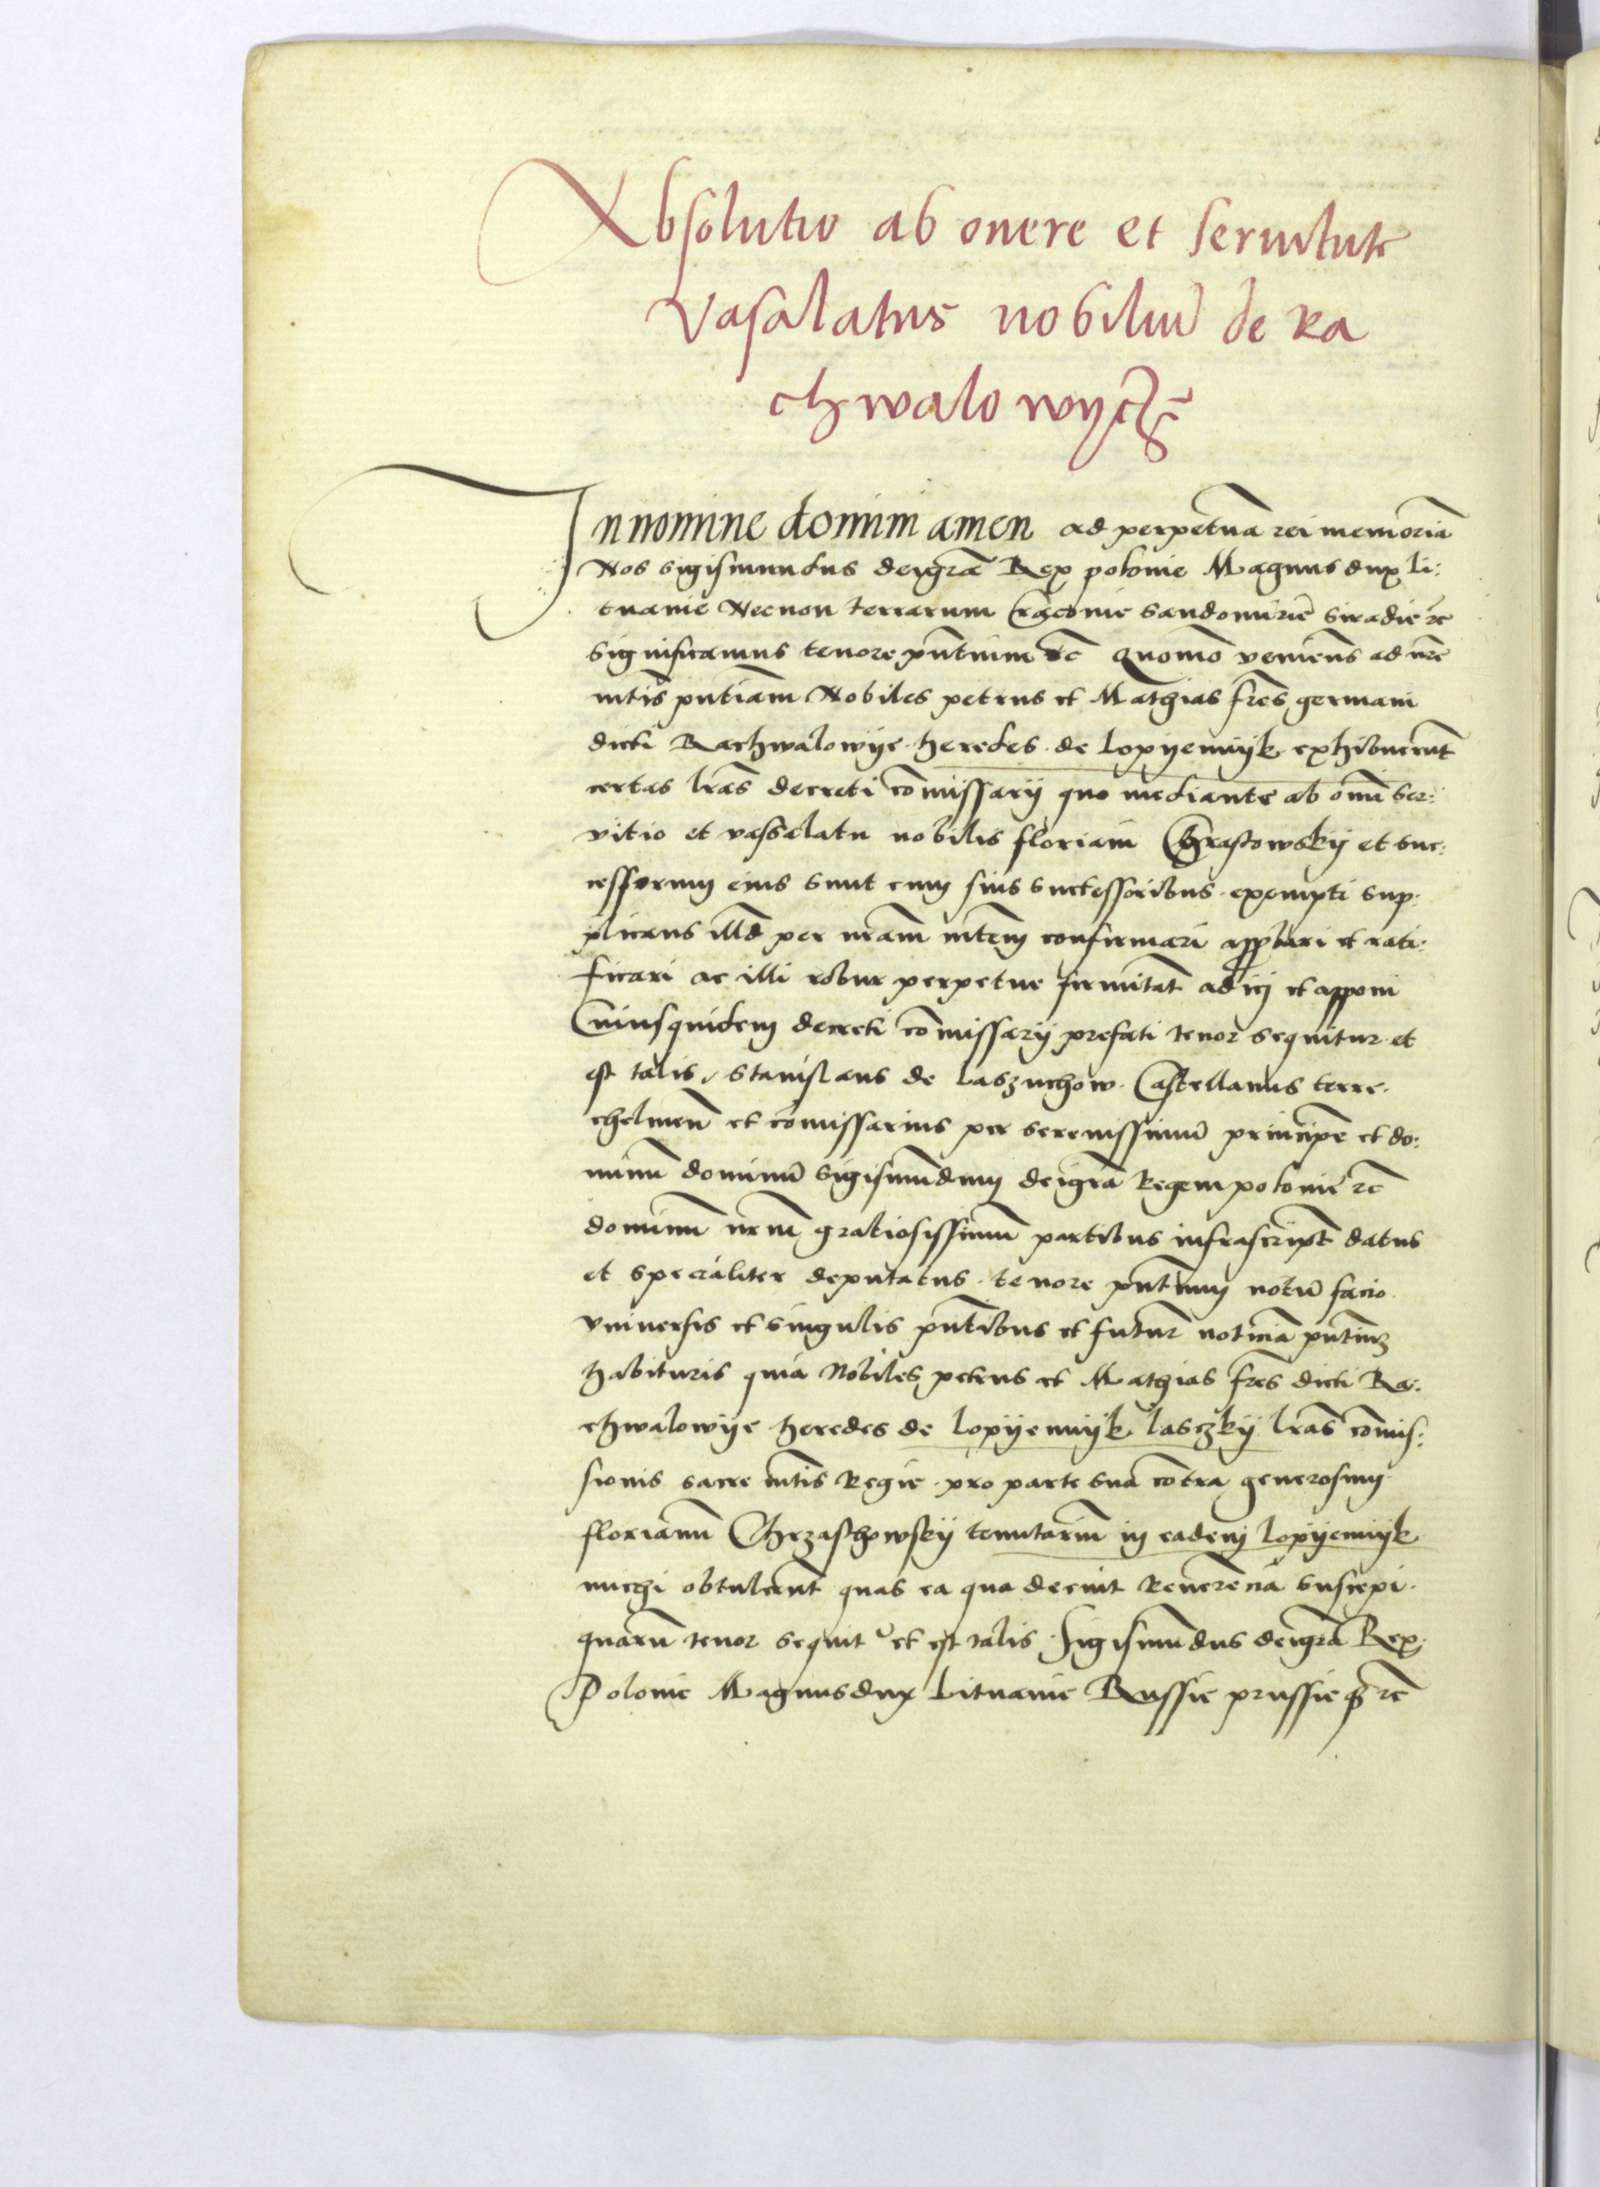 Absolutio ab onere et seruitute
vasalatus nobiliū de Ra
chwalowycze
In nomine domini amen ad perpetuā rei memoriā
Nos Sigismundus dei grā Rex polonie Magnus dux li:
tuanie Necnon terrarum Cracovie Sandomiriē Siradie ꝛc
Significamus tenore pn̄tium ꝛc Quomō veniens ad nr̄e
mt̄is pn̄tiam Nobiles petrus et Mathias fr̄es germani
dicti Rachwalowije heredes de lopyennijk exhibuerūt
certas lrās decreti cōmissarij quo mediante ab om̄i ser:
vitio et vassalatu nobilis floriani Chrastowskij et suc:
cessorum eius sunt cum suis successoribus exempti sup:
plicans ill̄d per nr̄am mt̄em confirmari app̄bari et rati:
ficari ac illi robur perpetue firmitat̄ adici et apponi
Cuiusquidem decreti cōmissarij prefati tenor sequitur et
est talis. Stanislaus de laszuchow Castellanus terre
chelmen̄ et cōmissarius per serenissimū principē et do:
minū dominū Sigismūdum dei grā Regem polonie ꝛc
dominū nr̄m gratiosissimū partibus infrascript̄ datus
et specialiter deputatus tenore pn̄tium notū facio
vniuersis et singulis pn̄tibus et futur̄ noticiā pn̄tium
habituris quia Nobiles petrus et Mathias fr̄es dicti Ra:
chwalowije heredes de lopyennijk lasczkij lrās cōmis:
sionis sacre mt̄is Regie pro parte sua cōtra generosum
florianū Chrzasthowskij tenutariū in eadem lopyennijk
michi obtulerūt quas ea qua decuit Reuerēcia suscepi
quarū tenor sequit et est talis Sigismūdus dei grā Rex
Polonie Magnus dux lituanie Russie prussieqȝ ꝛc